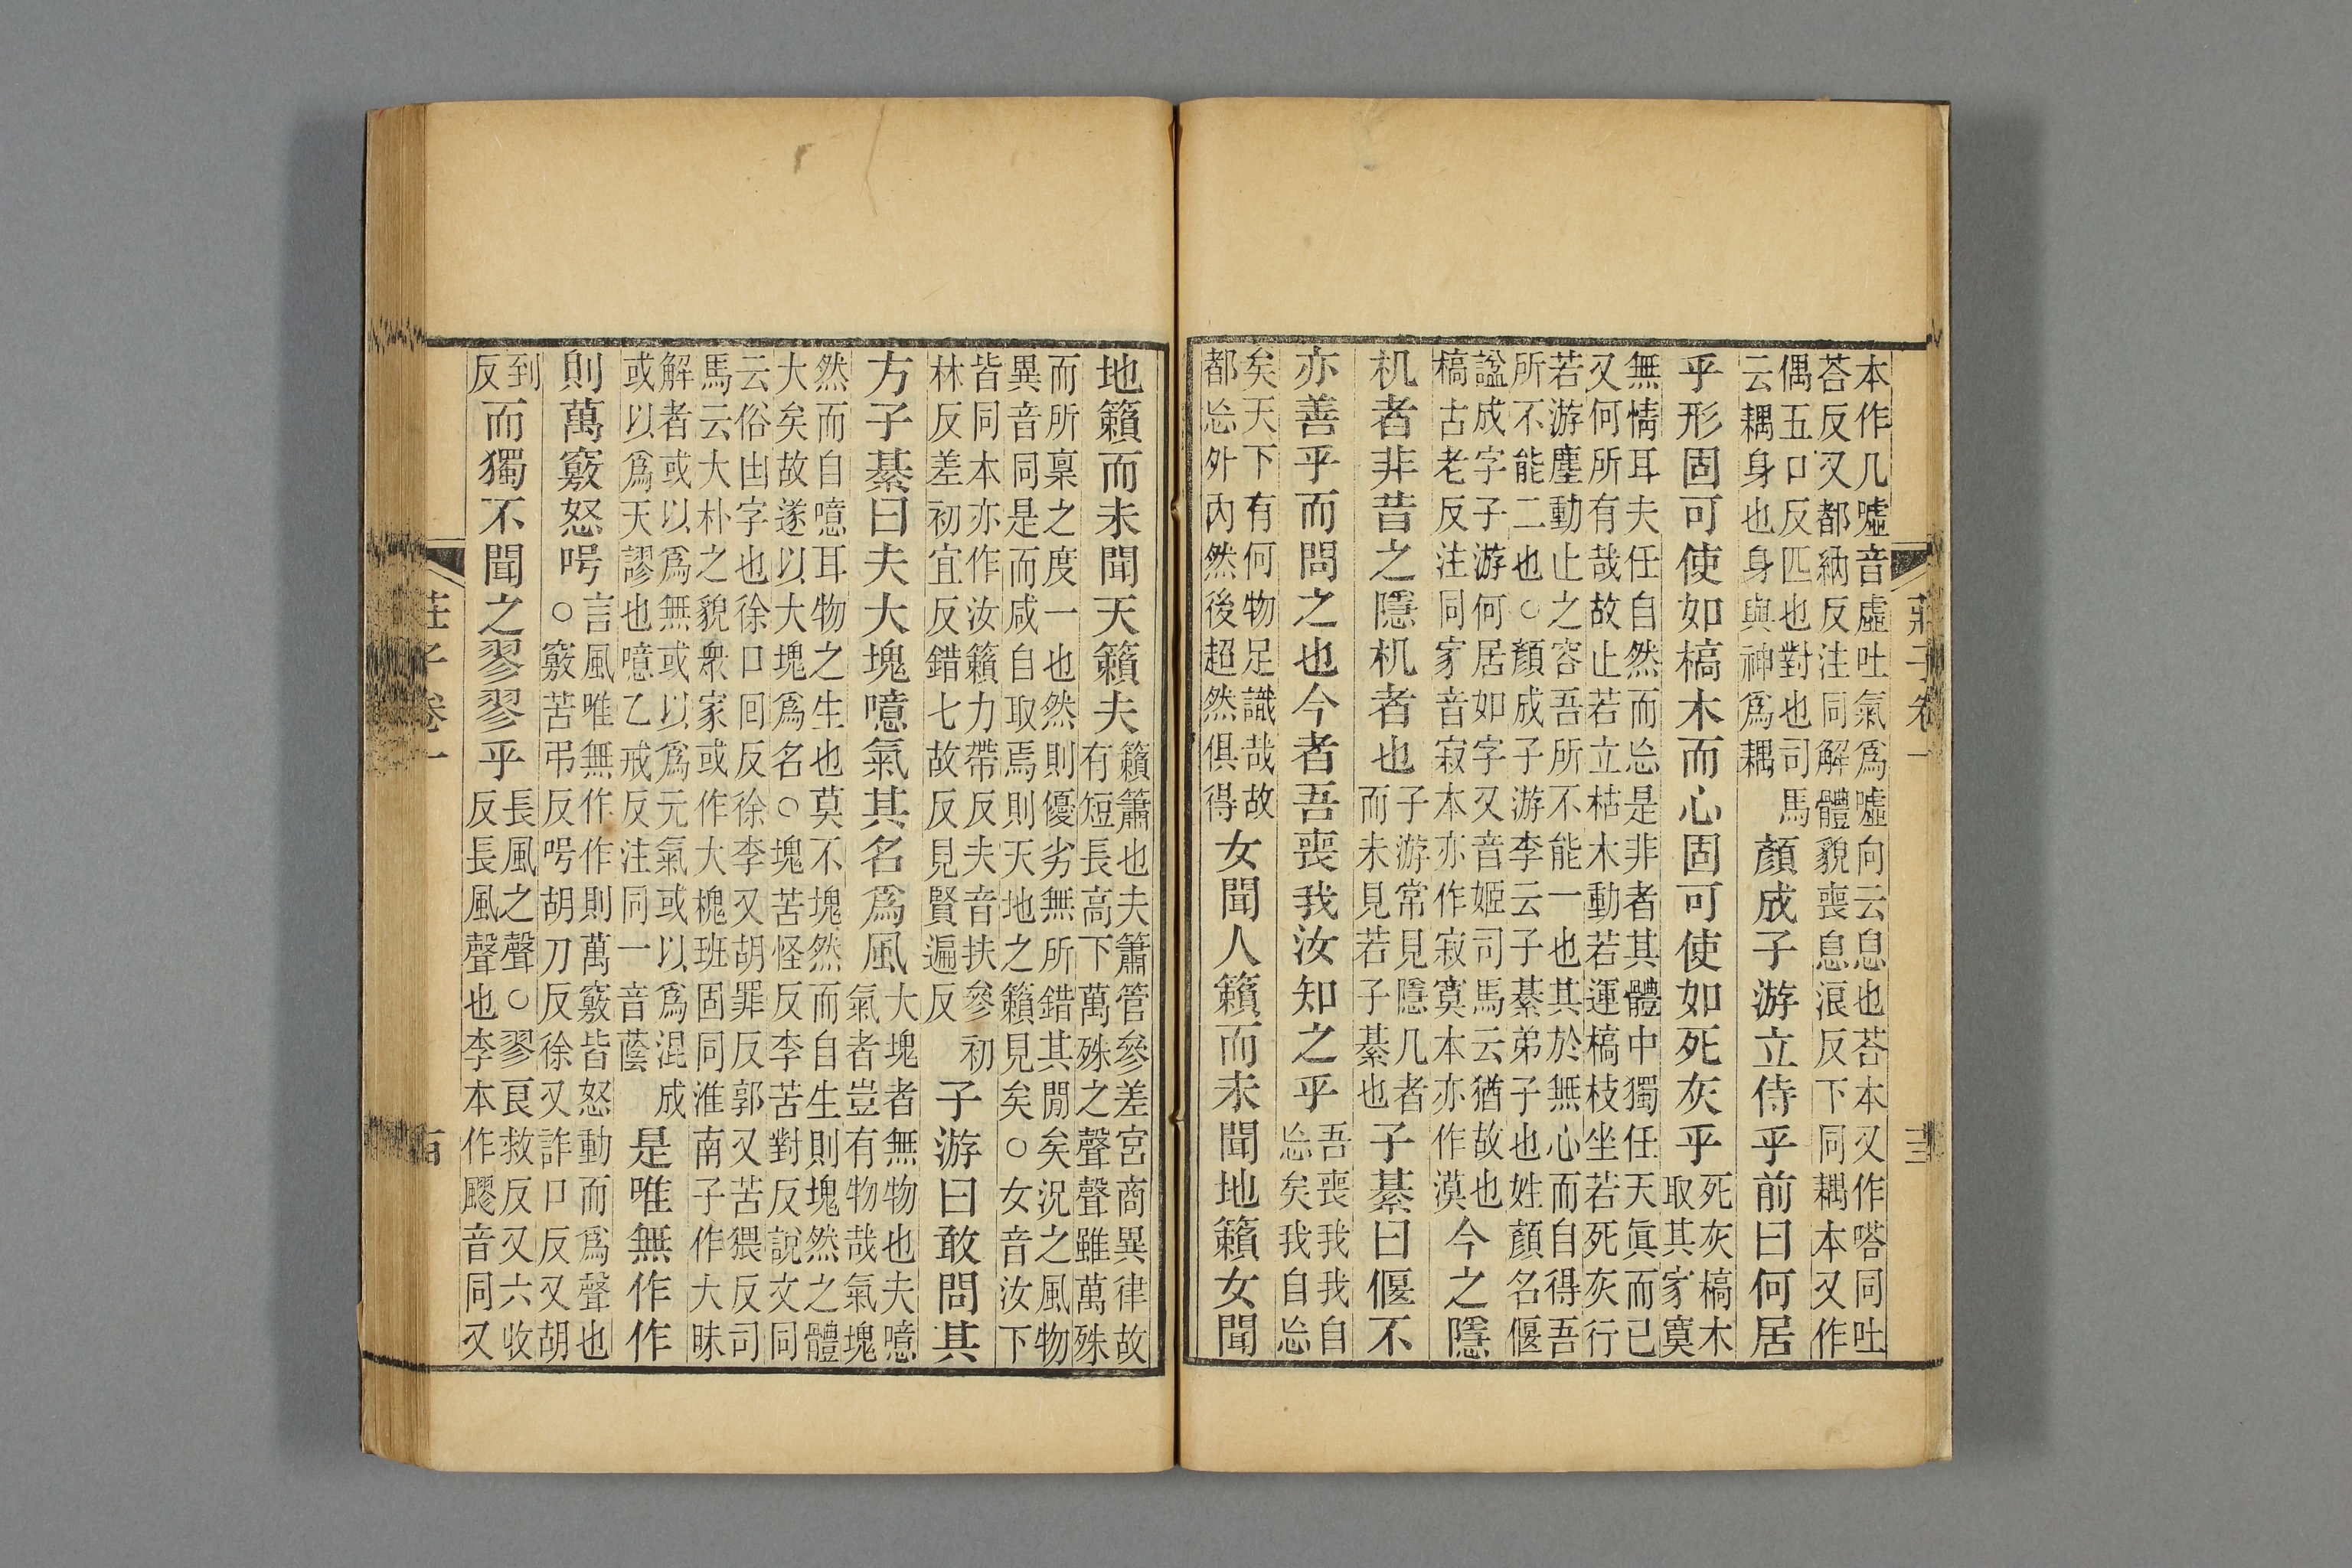 莊子卷一
本作几嘘音虛吐氣爲嘘向云息也荅本又作嗒同吐
荅反又都納反注同解體貌喪息浪反下同耦本又作
偶五口反匹也對也司馬
云耦身也身與神爲耦
顏成子游立侍乎前曰何居
乎形固可使如槁木而心固可使如死灰乎
死灰槁木
取其家寞
無情耳夫任自然而忘是非者其體中獨任天眞而已
又何所有哉故止若立枯木動若運槁枝坐若死灰行
若游塵動止之容吾所不能一也其於無心而自得吾
所不能二也○顏成子游李云子綦弟子也姓顏名偃
諡成字子游何居如字又音姬司馬云猶故也
槁古老反注同家音寂本亦作寂寞本亦作漠
今之隱
机者非昔之隱机者也
子游常見隱几者
而未見若子綦也
子綦曰偃不
亦善乎而問之也今者吾喪我汝知之乎
吾喪我我自
忘矣我自忘
矣天下有何物足識哉故
都忘外內然後超然俱得
女聞人籟而未聞地籟女聞
地籟而未聞天籟夫
籟簫也夫簫管參差宮商異律故
有短長高下萬殊之聲聲雖萬殊
而所稟之度一也然則優劣無所錯其閒矣況之風物
異音同是而咸自取焉則天地之籟見矣○女音汝下
皆同本亦作汝籟力帶反夫音扶參初
林反差初宜反錯七故反見賢遍反
子游曰敢問其
方子綦曰夫大塊噫氣其名爲風
大塊者無物也夫噫
氣者豈有物哉氣塊
然而自噫耳物之生也莫不塊然而自生則塊然之體
大矣故遂以大塊爲名○塊苦怪反李苦對反說文同
云俗凷字也徐口回反徐李又胡罪反郭又苦猥反司
馬云大朴之貌衆家或作大槐班固同淮南子作大昧
解者或以爲無或以爲元氣或以爲混成
或以爲天謬也噫乙戒反注同一音蔭
是唯無作作
則萬竅怒呺
言風唯無作作則萬竅皆怒動而爲聲也
○竅苦弔反呺胡刀反徐又詐口反又胡
到
反
而獨不聞之翏翏乎
長風之聲○翏良救反又六收
反長風聲也李本作飂音同又
莊子卷一